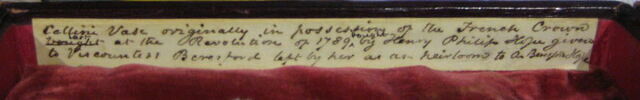 Cellini Vase originally in possession of the French Crown
bought at the Revolution of 1789 by Henry Philip Hope given
to Viscountess Beresford left by her as an heirloom to A. Beresford Hope